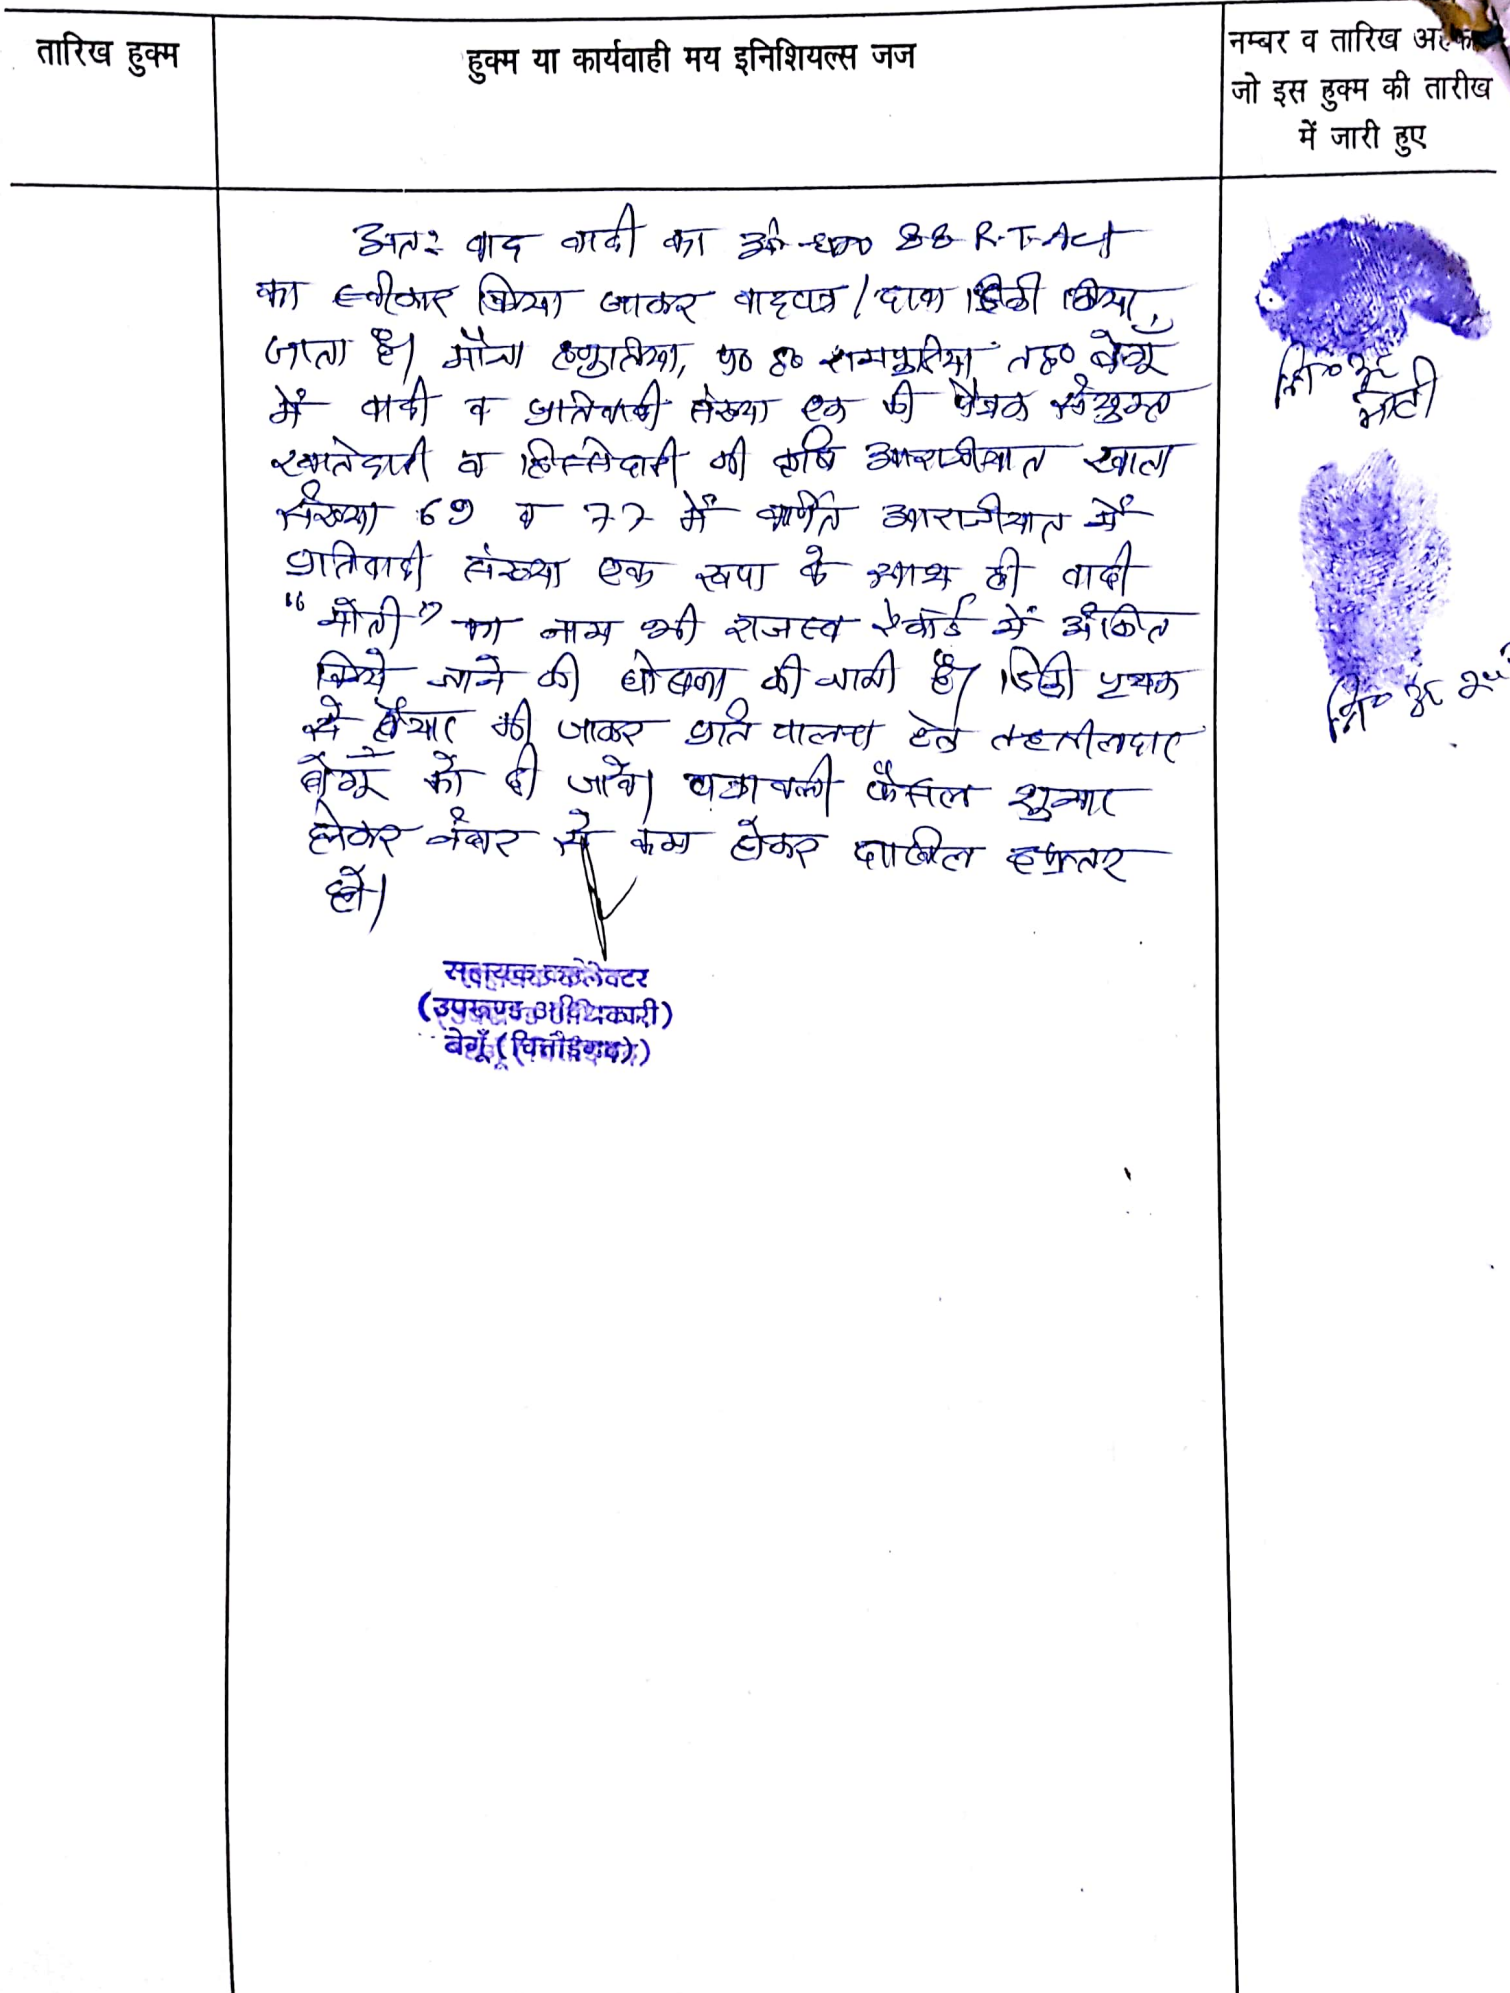 तारिख हुक्म
हुक्म या कार्यवाही मय इनिशियल्स जज
नम्बर व तारिख अहका
जो इस हुक्म की तारीख
में जारी हुए
अतः वाद वादी का 88 R.T. Act
का स्वीकार किया जाकर वादपत्र / दावा डिक्री किया
जाता है। मौजा प० ह० रामपुरिया तह० बेगूँ
में वादी व प्रतिवादी संख्या एक की पैत्रक संयुक्त
खातेदारी व हिस्सेदारी की कृषि आराजीयात खाता
संख्या 69 व 77 में वर्णित आराजीयात में
प्रतिवादी संख्या एक रूपा के साथ ही वादी
"मोती" का नाम भी राजस्व रेकॉर्ड में अंकित
किये जाने की घोषणा की जाती है। डिक्री पृथक
से तैयार की जाकर प्रति पालना हेतु तहसीलदार
बेगूँ को दी जावे। पत्रावली फैसल शुमार
होकर नंबर से कम होकर दाखिल दफ्तर
हो।
सहायक कलेक्टर
(उपखण्ड अधिकारी)
बेगूँ (चित्तौड़गढ़)
नि० अं०
मोती
नि० अं०